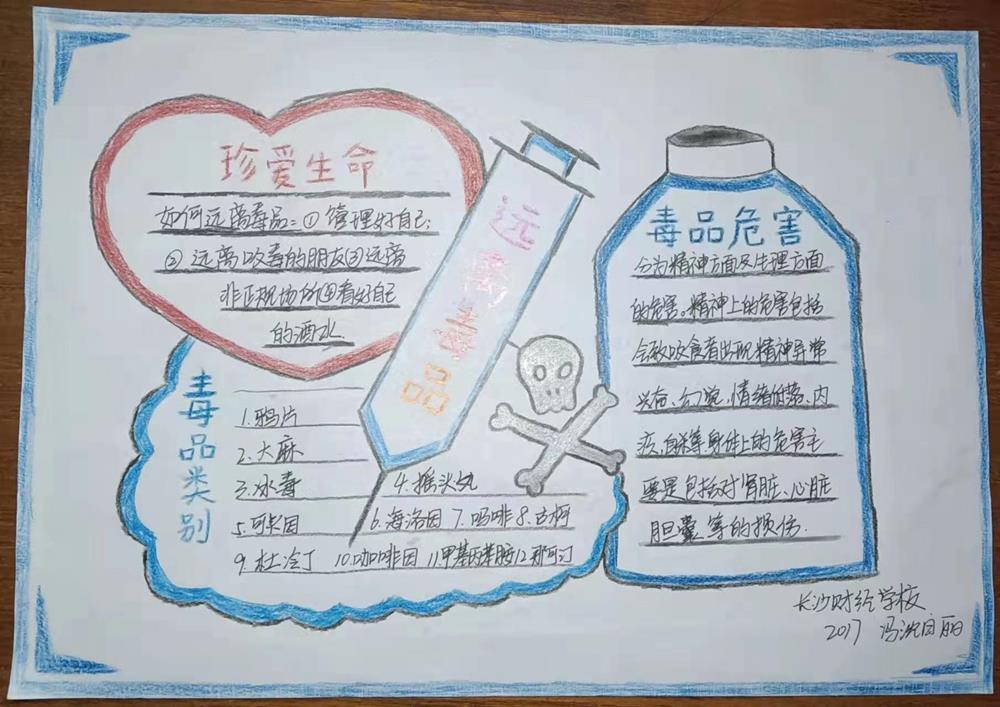 珍爱生命
如何远离毒品:①管理好自己;
②远离吸毒的朋友③远离
非正规场所④看好自己
的酒水
远离毒品
毒品类别
1.鸦片
2.大麻
3.冰毒
4.摇头丸
5.可卡因
6.海洛因 7.吗啡 8.古柯
9.杜冷丁 10.咖啡因 11.甲基丙苯胺 12.那可汀
毒品危害
分为精神方面及生理方面
的危害。精神上的危害包括
会致吸食者出现精神异常
兴奋、幻觉、情绪低落、内
疚、自杀等身体上的危害主
要是包括对肾脏、心脏
胆囊等的损伤.
长沙财经学校
2017 冯 丽